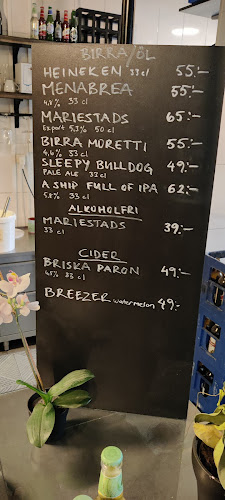 BIRRA/ÖL
HEINEKEN 33 cl 55:-
MENABREA 55:-
4,8% 33 cl
MARIESTADS 65:-
Export 5,3% 50 cl
BIRRA MORETTI 55:-
4,6% 33 cl
SLEEPY BULLDOG 49:-
PALE ALE 33 cl
A SHIP FULL OF IPA 62:-
5,8% 33 cl
ALKOHOLFRI
MARIESTADS 39:-
33 cl
CIDER
BRISKA PÄRON 49:-
4,5% 33 cl
BREEZER watermelon 49:-